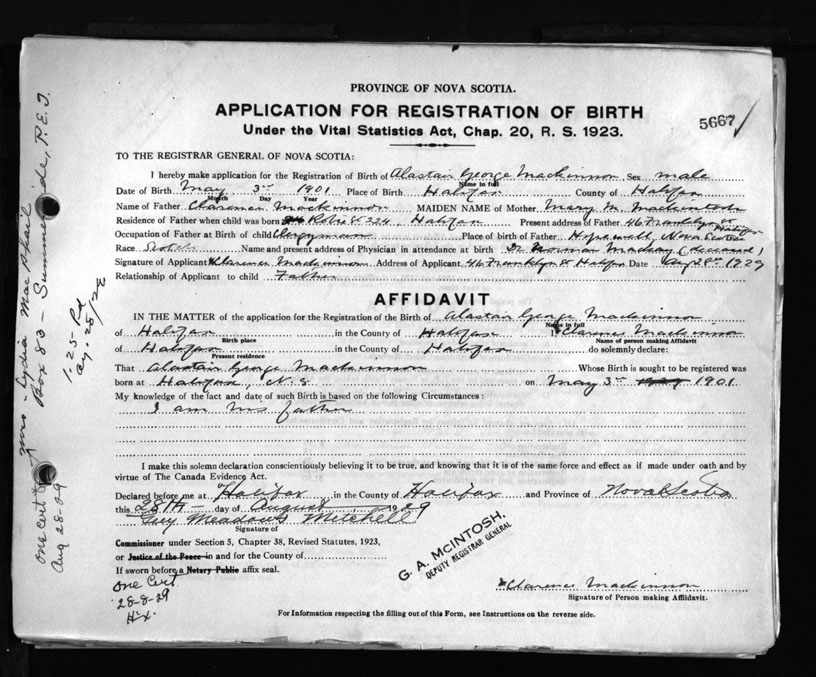 PROVINCE OF NOVA SCOTIA.
APPLICATION FOR REGISTRATION OF BIRTH
5667
Under the Vital Statistics Act, Chap. 20, R. S. 1923.
TO THE REGISTRAR GENERAL OF NOVA SCOTIA:
I hereby make application for the Registration of Birth of Alastair George Mackinnon Sex male
Name in full
Date of Birth May 3rd 1901 Place of Birth Halifax County of Halifax
Month Day Year
Name of Father Clarence Mackinnon MAIDEN NAME of Mother Mary M. Mackintosh
Residence of Father when child was born Robie St 224, Halifax Present address of Father 46 Franklyn St Halifax
Occupation of Father at Birth of child Clergyman Place of birth of Father Hopewell, Nova Scotia
Race Scotch Name and present address of Physician in attendance at birth Dr Norman Mackay (deceased)
Signature of Applicant Clarence Mackinnon Address of Applicant 46 Franklyn St Halifax Date Aug 28th 1929
Relationship of Applicant to child Father
AFFIDAVIT
IN THE MATTER of the application for the Registration of the Birth of Alastair George Mackinnon
Name in full
of Halifax in the County of Halifax I Clarence Mackinnon
Birth place Name of person making Affidavit
of Halifax in the County of Halifax do solemnly declare:
Present residence
That Alastair George Mackinnon Whose Birth is sought to be registered was
born at Halifax, N. S. on May 3rd 1901
My knowledge of the fact and date of such Birth is based on the following Circumstances:
I am his father
I make this solemn declaration conscientiously believing it to be true, and knowing that it is of the same force and effect as if made under oath and by
virtue of The Canada Evidence Act.
Declared before me at Halifax in the County of Halifax and Province of Nova Scotia
this 28th day of August 1929
Guy Meadows Mitchell
Signature of
Commissioner under Section 5, Chapter 38, Revised Statutes, 1923,
or Justice of the Peace in and for the County of
If sworn before a Notary Public affix seal.
G. A. McINTOSH,
DEPUTY REGISTRAR GENERAL
Clarence Mackinnon
Signature of Person making Affidavit.
One Cert.
28-8-29
Hx.
For Information respecting the filling out of this Form, see Instructions on the reverse side.
one cert to Mrs. Lydia MacPhail
Aug 28-29
Box 83 - Summerside, P.E.I.
1.25 Pd